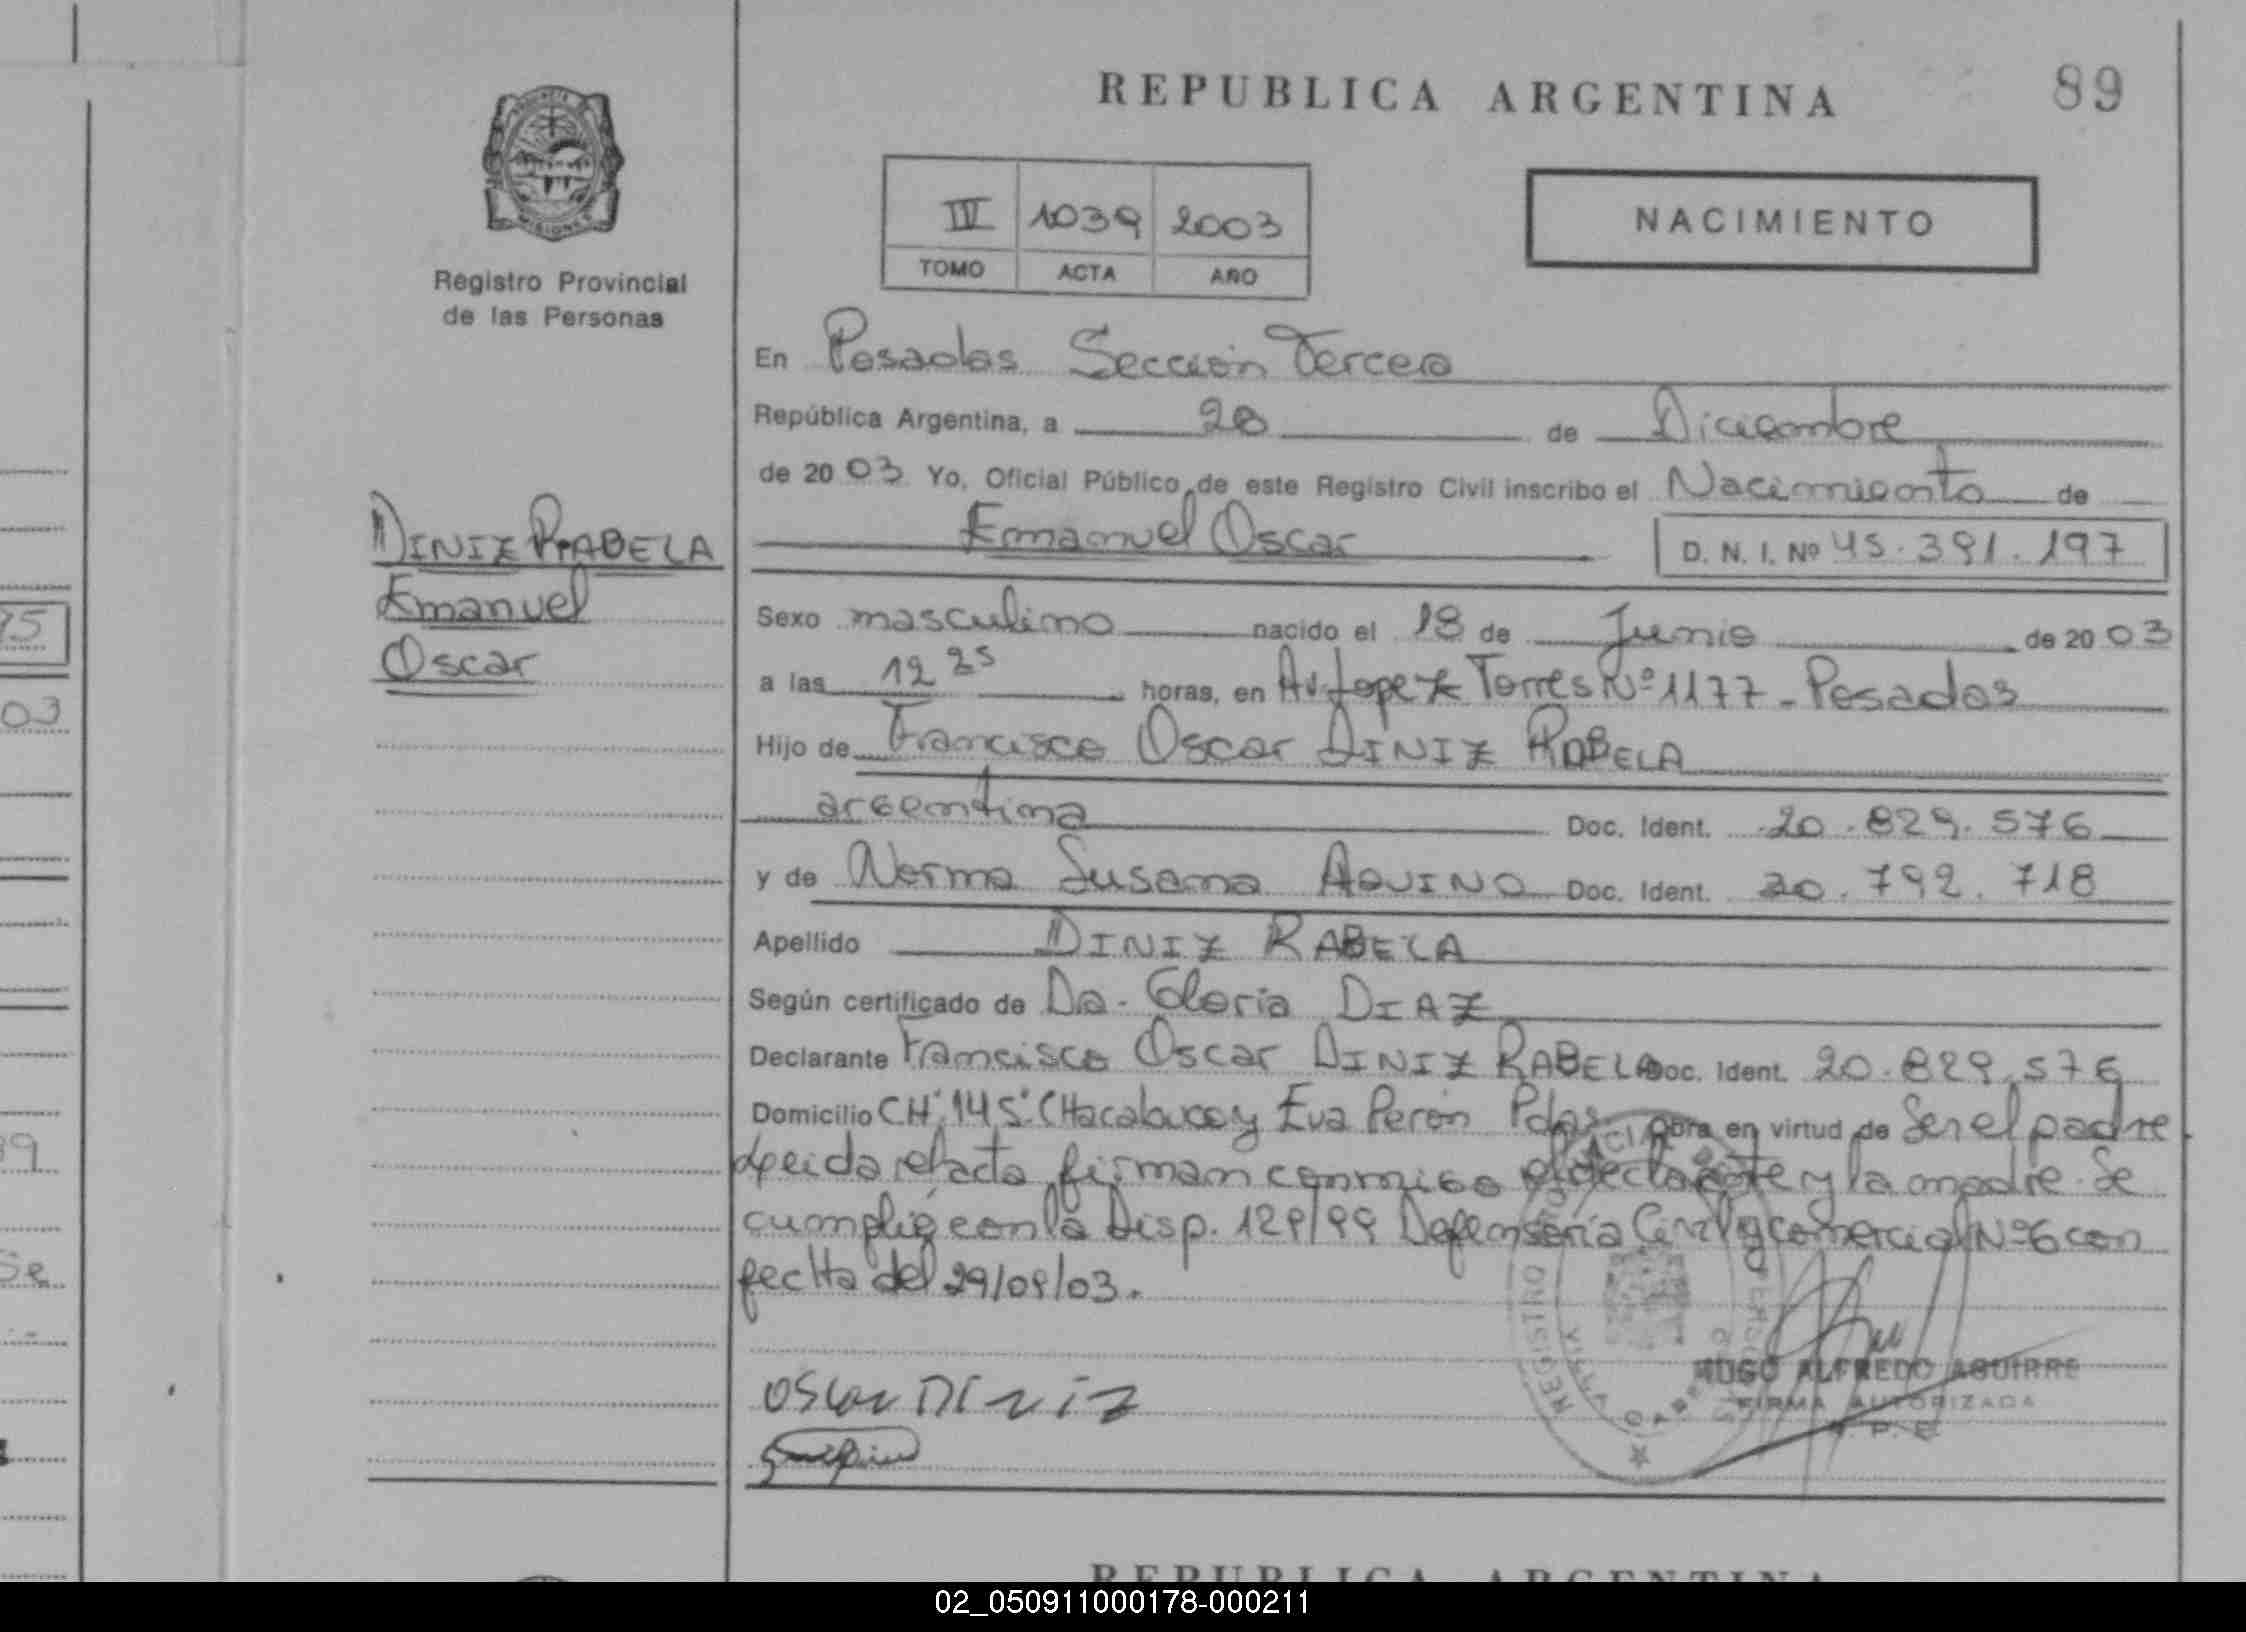 REPUBLICA ARGENTINA
89
IV 1039 2003
TOMO ACTA AÑO
NACIMIENTO
PROVINCIA DE
MISIONES
Registro Provincial
de las Personas
DINIZ RABELA
Emanuel
Oscar
En Posadas Sección Tercera
República Argentina, a 20 de Diciembre
de 2003 Yo, Oficial Público de este Registro Civil inscribo el Nacimiento de
Emanuel Oscar D. N. I. Nº 45.391.197
Sexo masculino nacido el 18 de Junio de 2003
a las 12 25 horas, en Av. Lopez Torres Nº 1177 - Posadas
Hijo de Francisco Oscar DINIZ RABELA
argentina Doc. Ident. 20.829.576
y de Norma Susana AQUINO Doc. Ident. 20.792.718
Apellido DINIZ RABELA
Según certificado de Da. Gloria DIAZ
Declarante Francisco Oscar DINIZ RABELA Doc. Ident. 20.829.576
Domicilio CH. 145 (Hacabuco y Eva Perón Pdas. obra en virtud de Ser el padre
Leida el acta firman conmigo el declarante y la madre. Se
cumplió con la Disp. 129/99 Defensoria Civil y comercial Nº 6 con
fecha del 29/09/03.
Oscar Diniz
HUGO ALFREDO AGUIRRE
FIRMA AUTORIZADA
R. P. E.
REPUBLICA ARGENTINA
75
03
Se
02_050911000178-000211